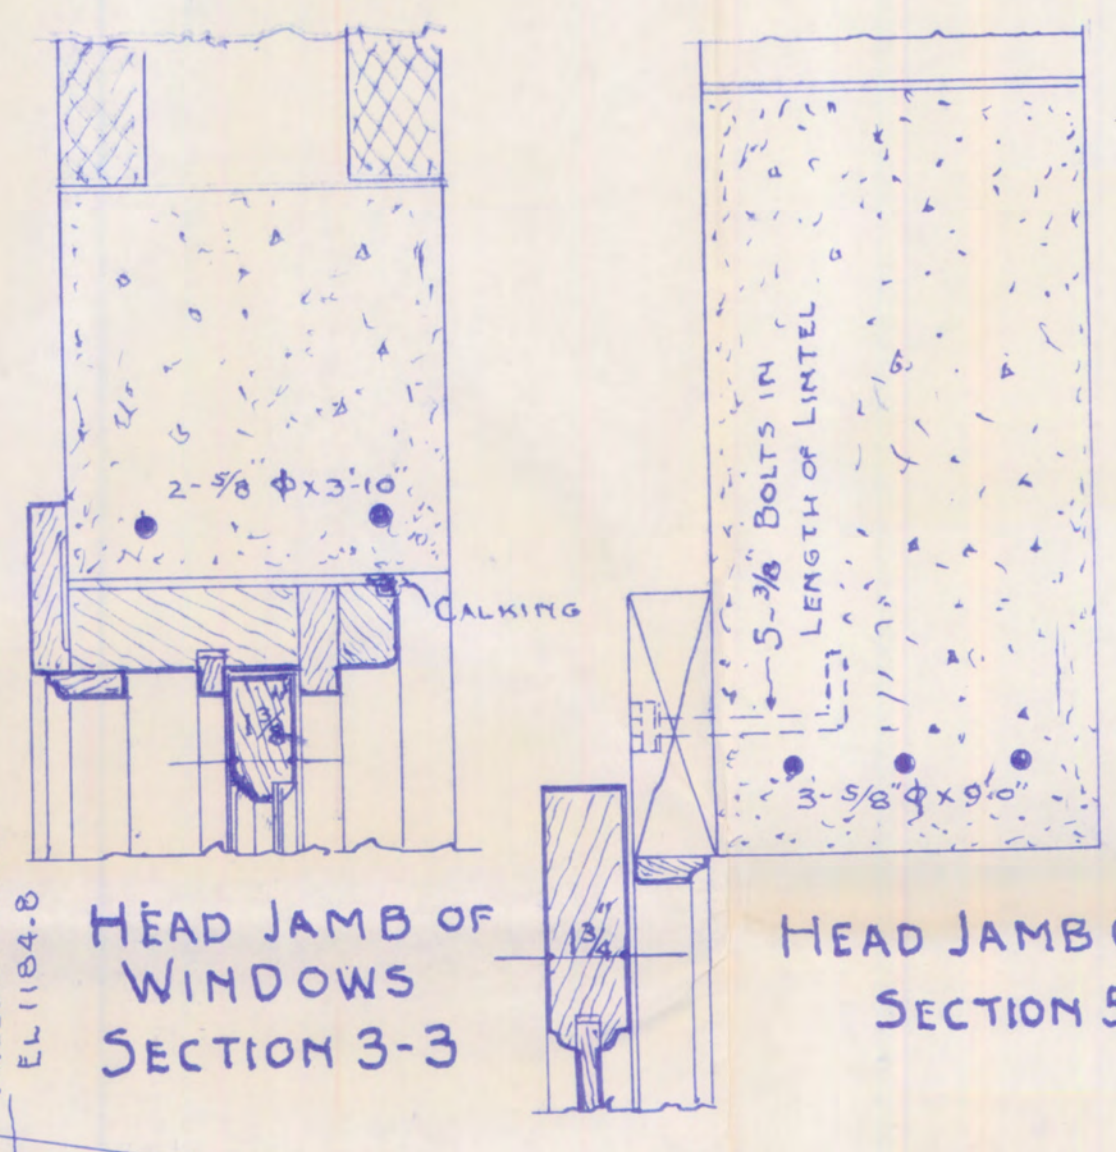 2-5/8" ϕ x 3'-10"
CALKING
1 3/8
HEAD JAMB OF
WINDOWS
SECTION 3-3
EL 1184-8
5-3/8" BOLTS IN
LENGTH OF LINTEL
3-5/8" ϕ x 9'-0"
1 3/4"
HEAD JAMB
SECTION 5